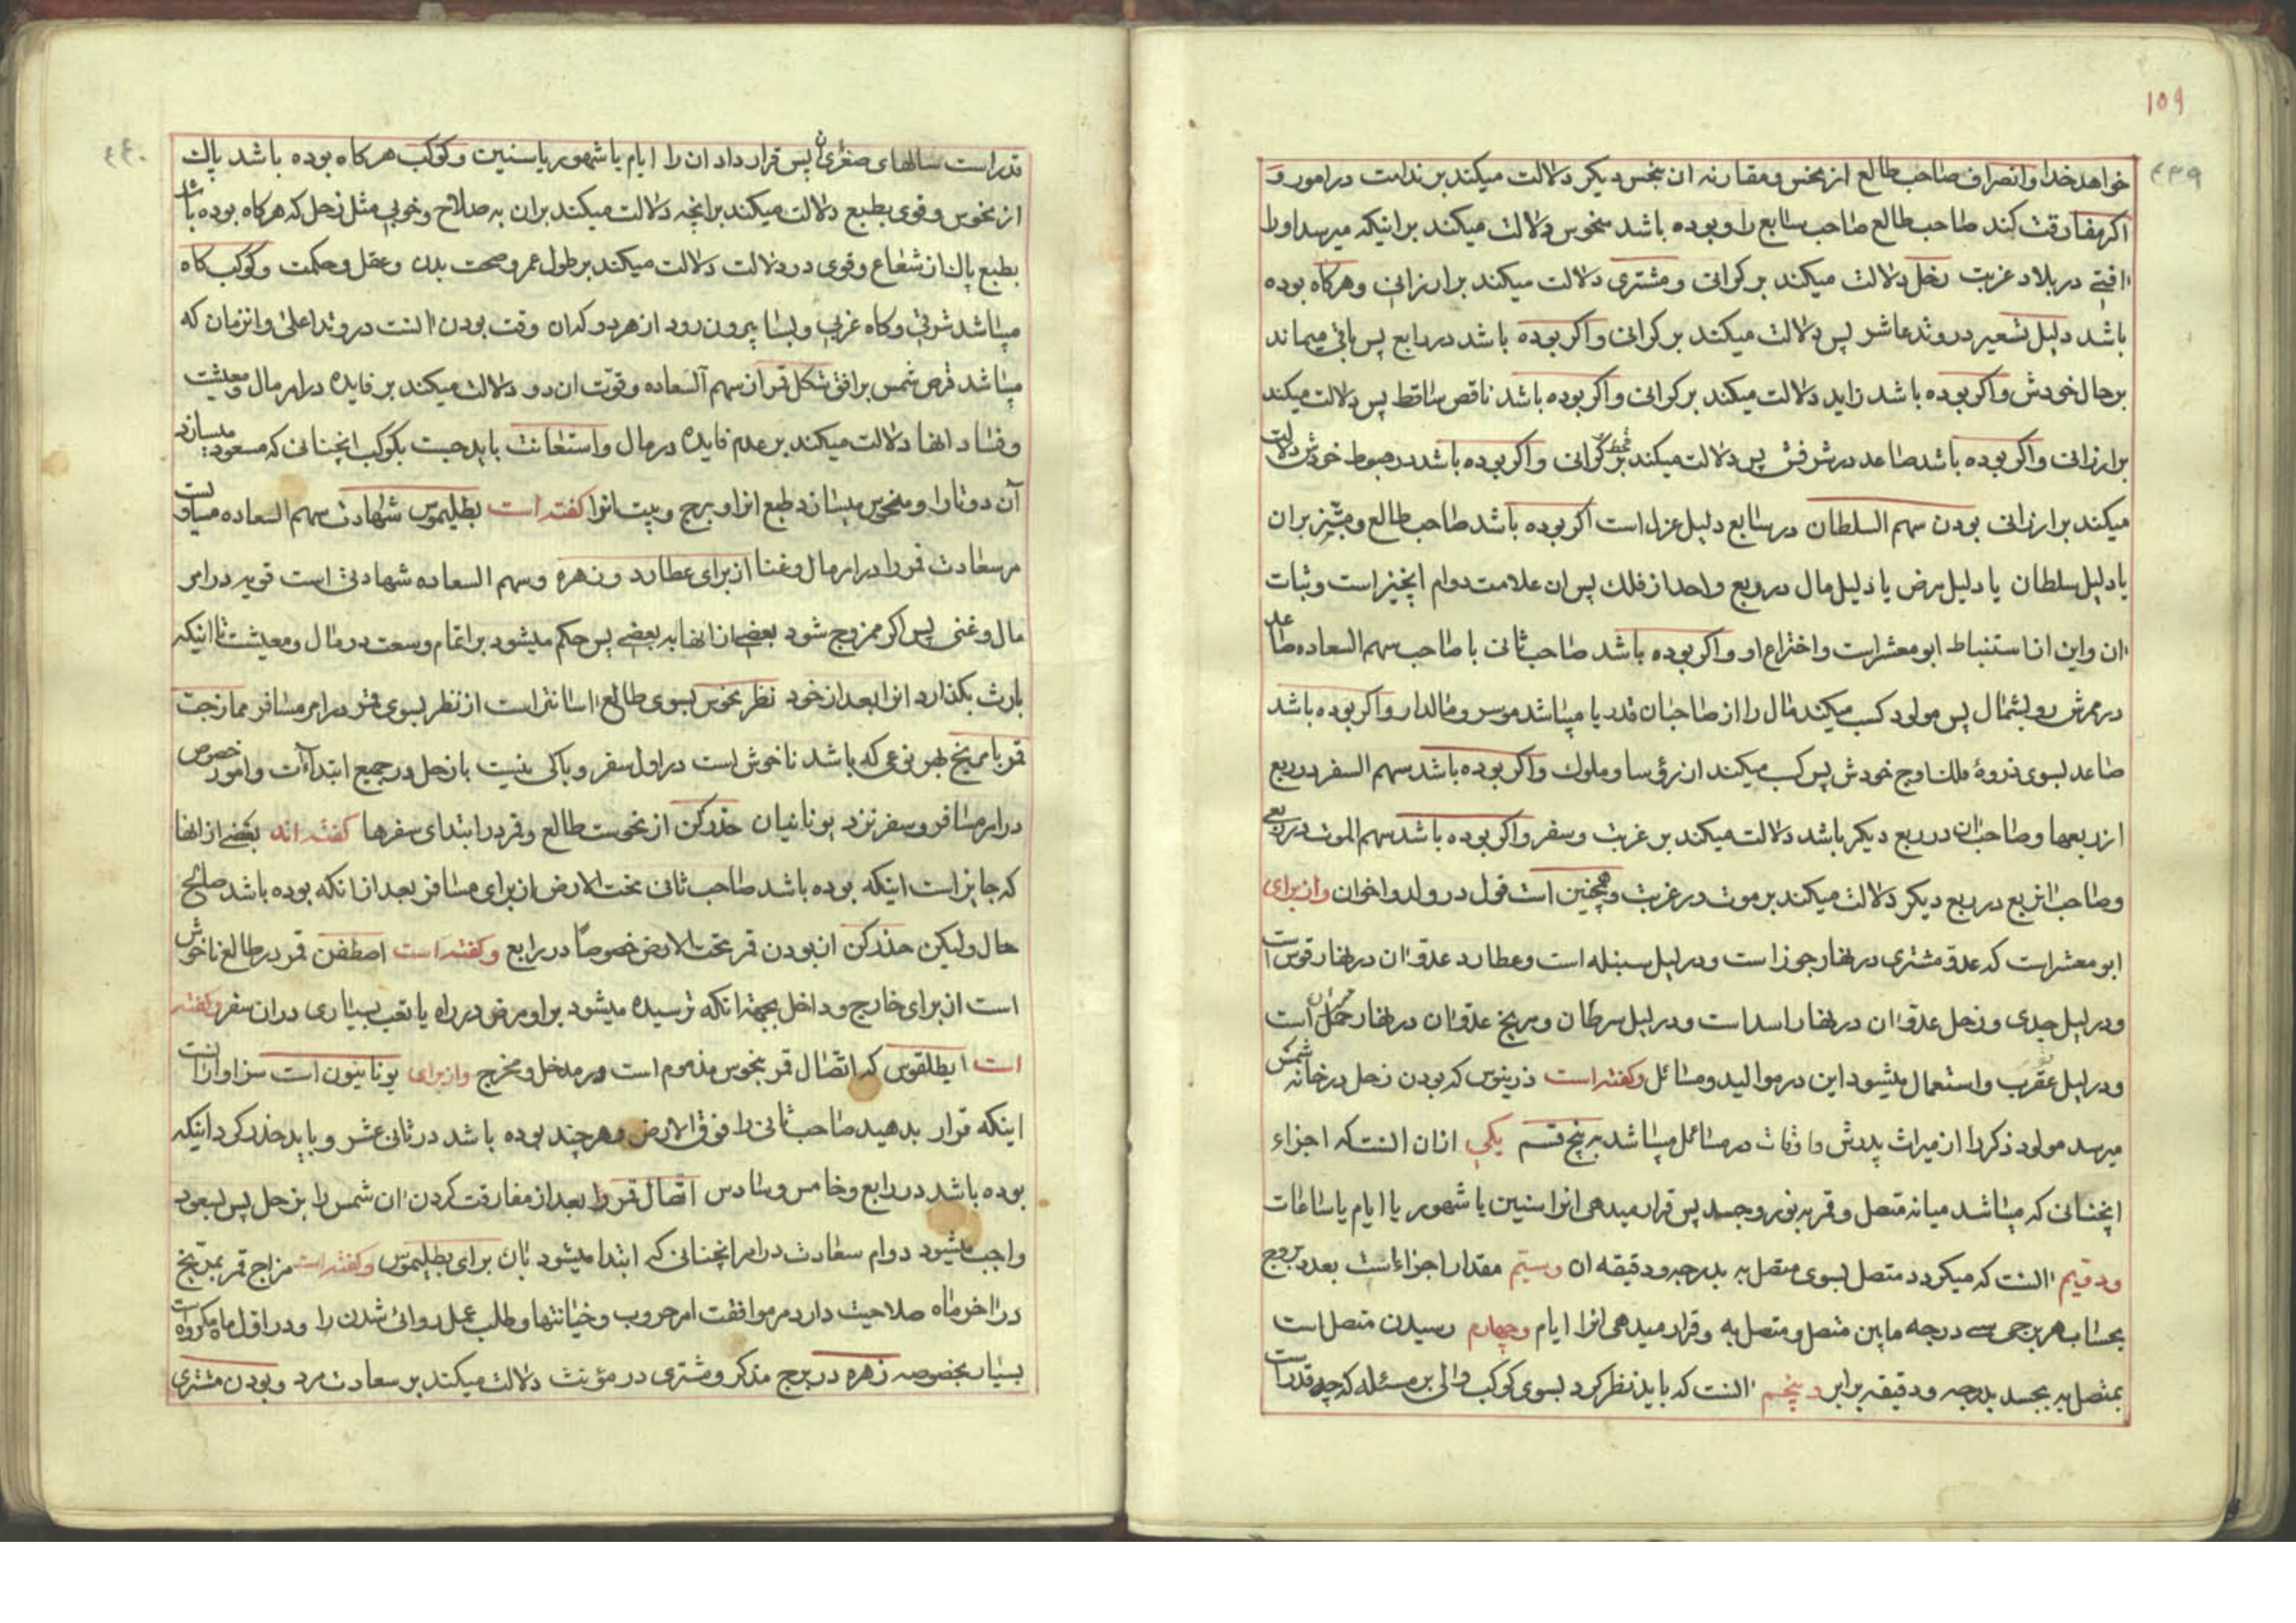 ١٥٩
٤٣٩
خواهد خدا وانصراف صاحب طالع از نحس و مقارنه ان بنحس دیکر دلالت میکند بر ندامت در امور و
اکر مفارقت کند صاحب طالع صاحب سابع را و بوده باشد منحوس دلالت میکند بر اینکه میرسد او را
افتی در بلاد غربت زحل دلالت میکند بر کرانی و مشتری دلالت میکند بر ارزانی و هرکاه بوده
باشد دلیل تسعیر در وتد عاشر پس دلالت میکند بر کرانی و اکر بوده باشد در رابع پس باقی میماند
بر حال خودش و اکر بوده باشد زاید دلالت میکند بر کرانی و اکر بوده باشد ناقص ساقط پس دلالت میکند
بر ارزانی و اکر بوده باشد صاعد در شرفش پس دلالت میکند بر قحط و کرانی و اکر بوده باشد در هبوط خودش دلالت
میکند بر ارزانی بودن سهم السلطان در سابع دلیل عزل است اکر بوده باشد صاحب طالع و مبتز بر ان
یا دلیل سلطان یا دلیل مرض یا دلیل مال در ربع واحد از فلک پس ان علامت دوام انچیز است و ثبات
ان و این از استنباط ابو معشر است و اختراع او و اکر بوده باشد صاحب ثانی با صاحب سهم السعاده صاعد
در عرش رو بشمال پس مولود کسب میکند مال را از صاحبان قدر یا میباشد موسر و مالدار و اکر بوده باشد
صاعد بسوی ذروهٔ فلک اوج خودش پس کسب میکند از رؤسا و ملوک و اکر بوده باشد سهم السفر در ربع
از ربعها و صاحب ان در ربع دیکر باشد دلالت میکند بر غربت و سفر و اکر بوده باشد سهم الموت در ربعی
و صاحب انربع در ربع دیکر دلالت میکند بر موت در غربت و همچنین است قول در ولد و اخوان و از برای
ابو معشر است که عدو مشتری در نهار جوزا است و در لیل سنبله است و عطارد عدو ان در نهار قوس است
و در لیل جدی و زحل عدو ان در نهار اسد است و در لیل سرطان و مریخ عدو ان در نهار حمل است
و در لیل عقرب و استعمال میشود این در موالید و مسائل و کفته است ذرینوس که بودن زحل در خانه شمس
میرسد مولود ذکر را از میراث پدرش و اوقات در مسائل میباشد بر پنج قسم یکی ازان انست که اجزاء
انچنانی که میباشد میانه متصل و قمر به نور و جسد پس قرار میدهی انرا سنین یا شهور یا ایام یا ساعات
و دویم انست که میکردد متصل بسوی متصل به بدرجه و دقیقه ان و سیم مقدار اجزاء است بعدد بروج
بحساب هر برجی سی درجه مابین متصل و متصل به و قرار میدهی انرا ایام و چهارم رسیدن متصل است
بمتصل به بجسد بدرجه و دقیقه برابر و پنجم انست که باید نظر کرد بسوی کوکب والی بر مسئله که چه قدر است
٤٤٠
قدر است سالهای صغرای ان پس قرار داد ان را ایام یا شهور یا سنین و کوکب هرکاه بوده باشد پاک
از نحوس و قوی بطبع دلالت میکند بر انچه دلالت میکند بران به صلاح و خوبی مثل زحل که هرکاه بوده باشد
بطبع پاک از شعاع و قوی در دلالت دلالت میکند بر طول عمر و صحت بدن و عقل و حکمت و کوکب کاه
میباشد شرقی و کاه غربی و بسا بیرون رود از هر دو کدان وقت بودن انست در وتد اعلی و انزمان که
میباشد قرص شمس بر افق شکل قمر از سهم السعاده و قوت ان دو دلالت میکند بر فایده در امر مال و معیشت
و فساد انها دلالت میکند بر عدم فایده در مال و استعانت باید جست بکوکب انچنانی که مسعود میسازد
آن دوتا را و منحوس میسازد طبع انرا و برج و بیت انرا کفته است بطلیموس شهادت سهم السعاده مساوی است
مر سعادت قمر را در امر مال و غنا از برای عطارد و زهره و سهم السعاده شهادتی است قویه در امر
مال و غنی پس اکر ممزوج شود بعضی از انها به بعضی پس حکم میشود بر اتمام وسعت در مال و معیشت تا اینکه
بارث بکذارد انرا بعد از خود نظر نحوس بسوی طالع اسانتر است از نظر بسوی قمر در امر مسافر ممازجت
قمر با مریخ بهر نوعی که باشد ناخوش است در اول سفر و باکی نیست با زحل در جمیع ابتداآت و امور خصوص
در امر مسافر و سفر نزد یونانیان حذر کن از نحوست طالع و قمر در ابتدای سفرها کفته اند بعضی از انها
که جایز است اینکه بوده باشد صاحب ثانی تحت الارض از برای مسافر بعد از انکه بوده باشد صالح
حال ولیکن حذر کن از بودن قمر تحت الارض خصوصًا در رابع و کفته است اصطفن قمر در طالع ناخوش
است از برای خارج و داخل بجهة انکه ترسیده میشود بر او مرض در راه یا تعب بسیاری در ان سفر و کفته
است ایطلقوس که اتصال قمر بنحوس مذموم است در مدخل و مخرج و از برای یونانیون است سزاوار انست
اینکه قرار بدهید صاحب ثانی را فوق الارض و هر چند بوده باشد در ثانی عشر و باید حذر کرد اینکه
بوده باشد در رابع و خامس و سادس اتصال قمر را بعد از مفارقت کردن ان شمس را بزحل پس بسعود
واجب میشود دوام سعادت در امر انچنانی که ابتدا میشود بان برای بطلیموس و کفته است مزاج قمر بمریخ
در اخر ماه صلاحیت دارد مر موافقت امر حروب و خیانتها و طلب عمل روائی شدن را و در اول ماه مکروه است
بسیار بخصوصه زهره در برج مذکر و مشتری در مؤنث دلالت میکند بر سعادت مرد و بودن مشتری